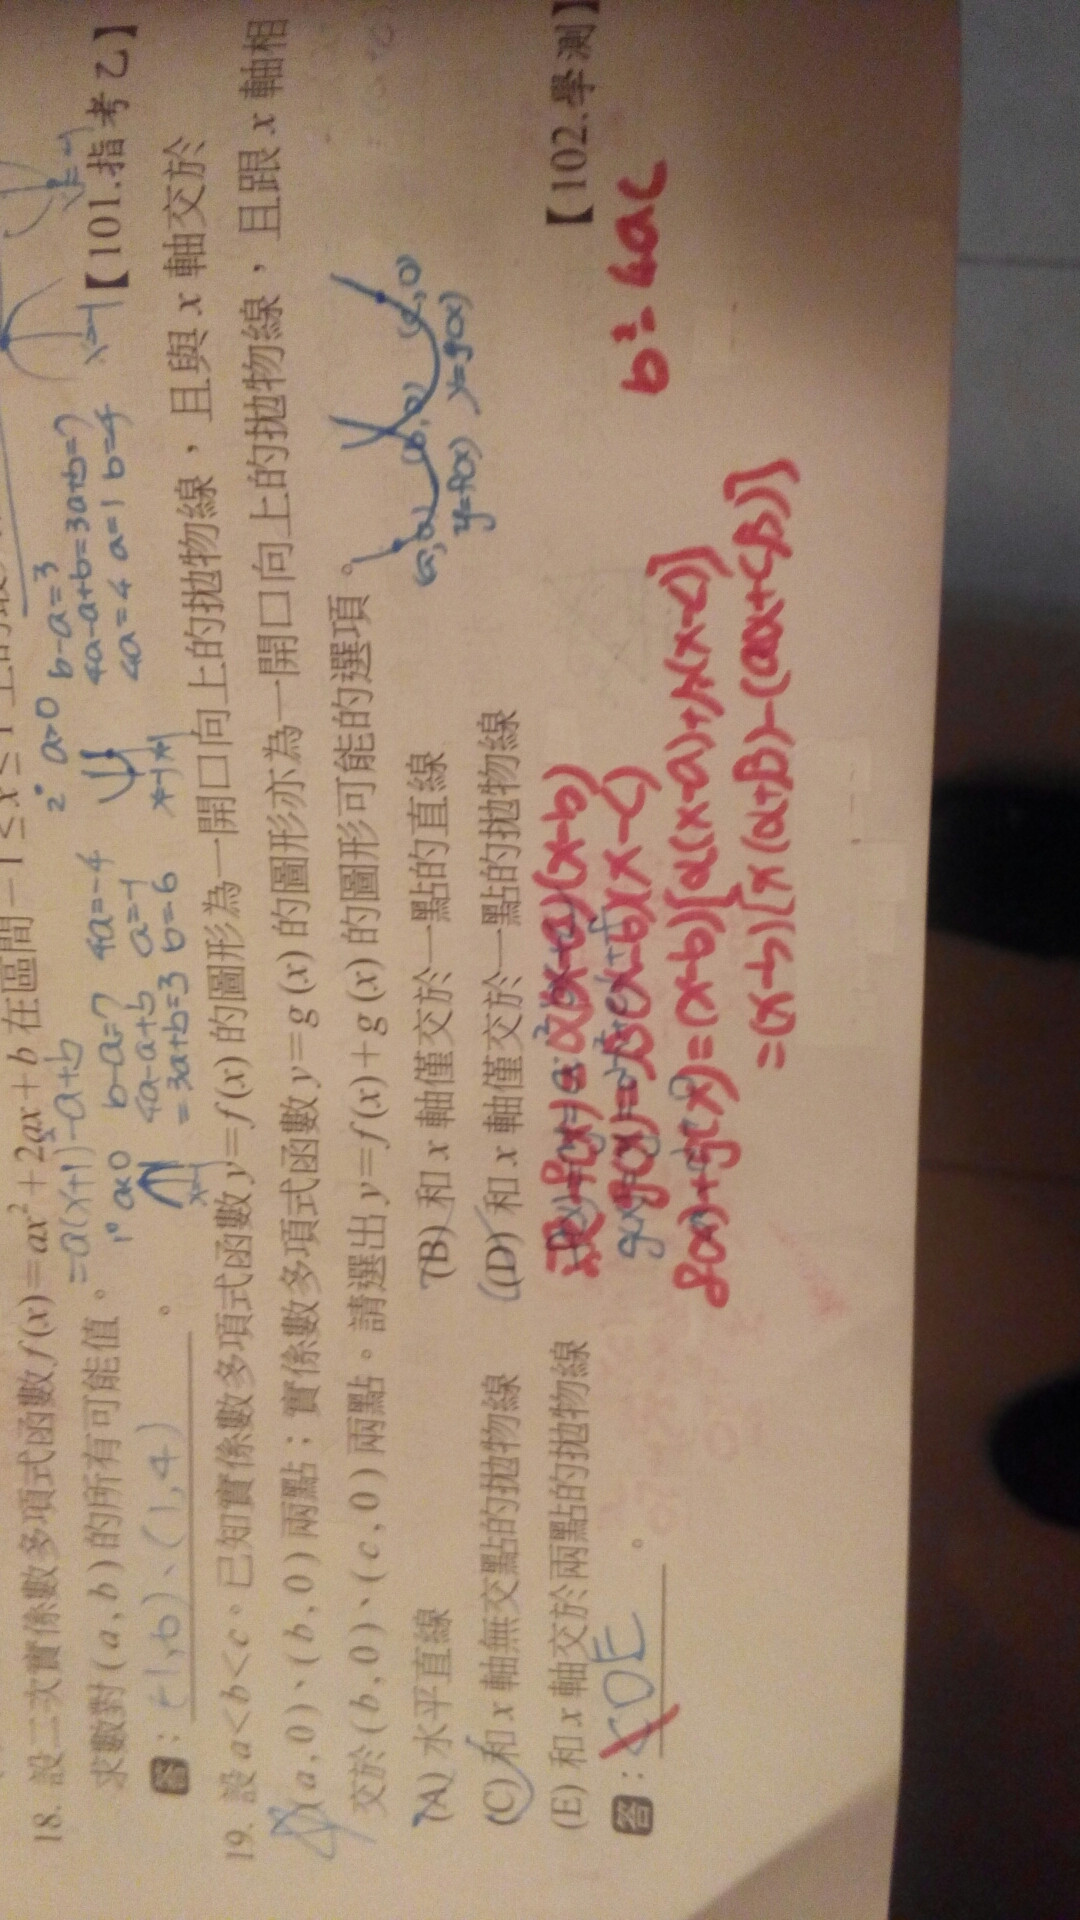 18. 設二次實係數多項式函數 f(x)=ax²+2ax+b 在區間 -1≤x≤1 上的最
=a(x+1)²-a+b
求數對(a,b)的所有可能值。
1° a<0 b-a=7 4a=-4
4a-a+b a=-1
=3a+b=3 b=6
x=-1
2° a>0 b-a=3
4a-a+b=3a+b=7
4a=4 a=1 b=4
x=-1 x=1
x=-1
【101.指考乙】
答:(-1,6)、(1,4)。
19. 設a<b<c。已知實係數多項式函數 y=f(x) 的圖形為一開口向上的拋物線,且與 x 軸交於
(a,0)、(b,0)兩點;實係數多項式函數 y=g(x) 的圖形亦為一開口向上的拋物線,且跟 x 軸相
交於(b,0)、(c,0)兩點。請選出 y=f(x)+g(x) 的圖形可能的選項。
(a,0) (b,0) (c,0)
y=f(x) y=g(x)
(A) 水平直線 (B) 和 x 軸僅交於一點的直線
(C) 和 x 軸無交點的拋物線 (D) 和 x 軸僅交於一點的拋物線
(E) 和 x 軸交於兩點的拋物線
【102.學測】
答:CDE。
設 f(x)=α(x-a)(x-b)
g(x)=β(x-b)(x-c)
f(x)+g(x)=(x-b)[α(x-a)+β(x-c)]
=(x-b)[x(α+β)-(aα+cβ)]
b²-4ac